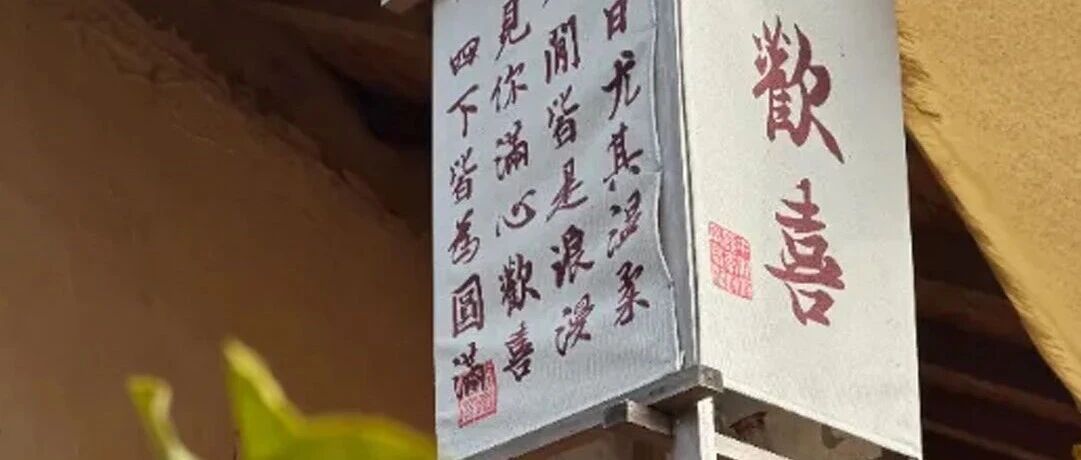 歡喜
日尤其温柔
間皆是浪漫
見你滿心歡喜
四下皆為圓滿